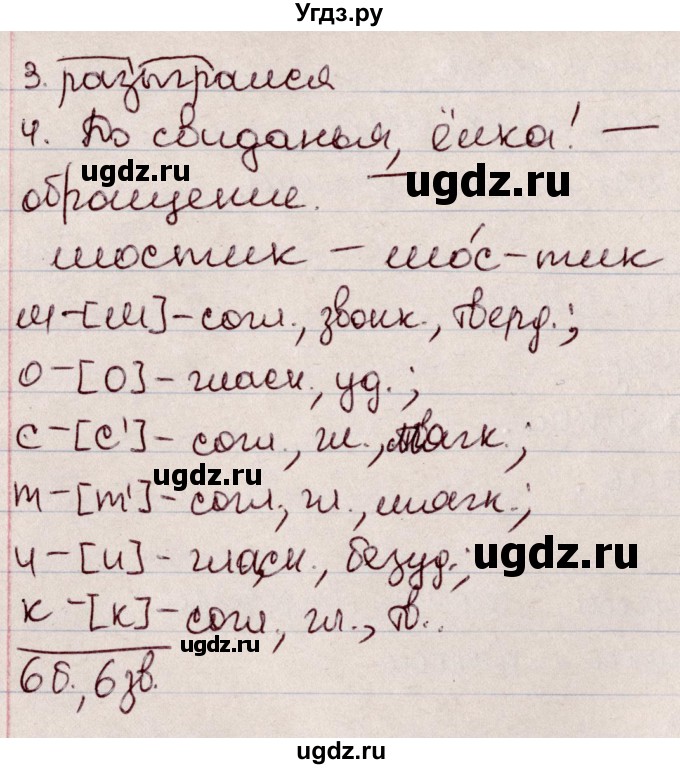 Угдз.ру
3. разыграмся
4. До свиданья, ёлка! —
ugdz.ru
ugdz.ru
обращение.
мостик – мо́с-тик
м – [м] – согл., звонк., тверд.;
о – [о] – гласн., уд.;
с – [с'] – согл., гл., мягк.;
ugdz.ru
т – [т'] – согл., гл., мягк.;
и – [и] – гласн., безуд.;
ugdz.ru
к – [к] – согл., гл., тв..
ugdz.ru
6 б., 6 зв.
ugdz.ru